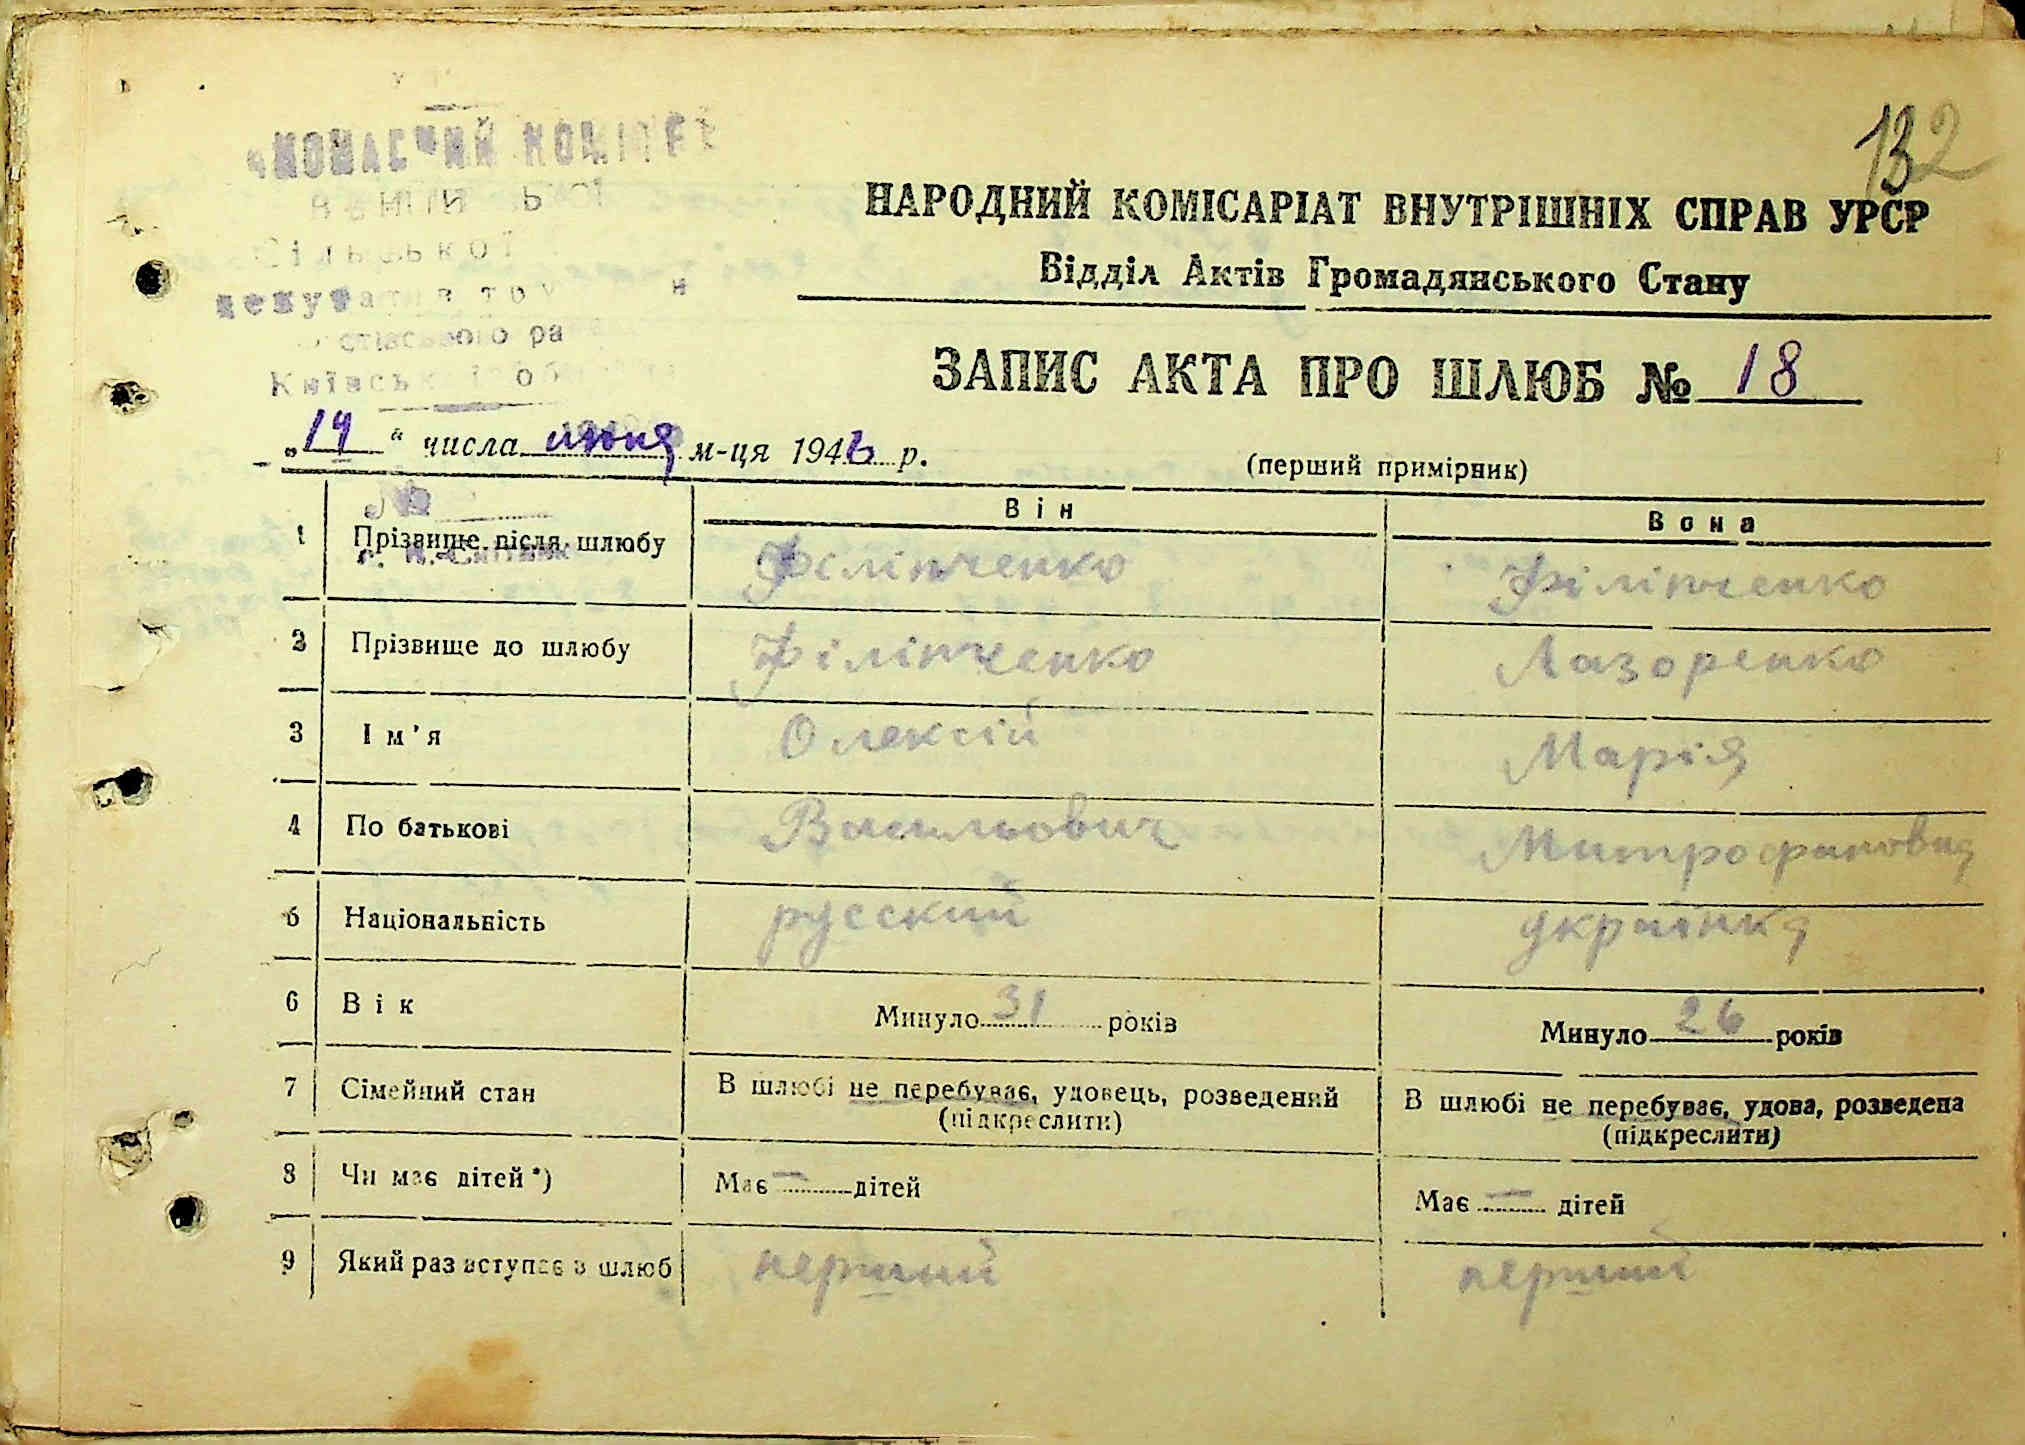 132
НАРОДНИЙ КОМІСАРІАТ ВНУТРІШНІХ СПРАВ УРСР
Відділ Актів Громадянського Стану
ЗАПИС АКТА ПРО ШЛЮБ № 18
„14“ числа июня м-ця 1946 р.
(перший примірник)
Він
Вона
1 Прізвище після шлюбу Філіпченко Філіпченко
2 Прізвище до шлюбу Філіпченко Лазоренко
3 Ім'я Олексій Марія
4 По батькові Васильович Митрофановна
5 Національність русский українка
6 Вік Минуло 31 років Минуло 26 років
7 Сімейний стан В шлюбі не перебуває, удовець, розведений В шлюбі не перебуває, удова, розведена
(підкреслити) (підкреслити)
8 Чи має дітей*) Має — дітей Має — дітей
9 Який раз вступає в шлюб перший перший